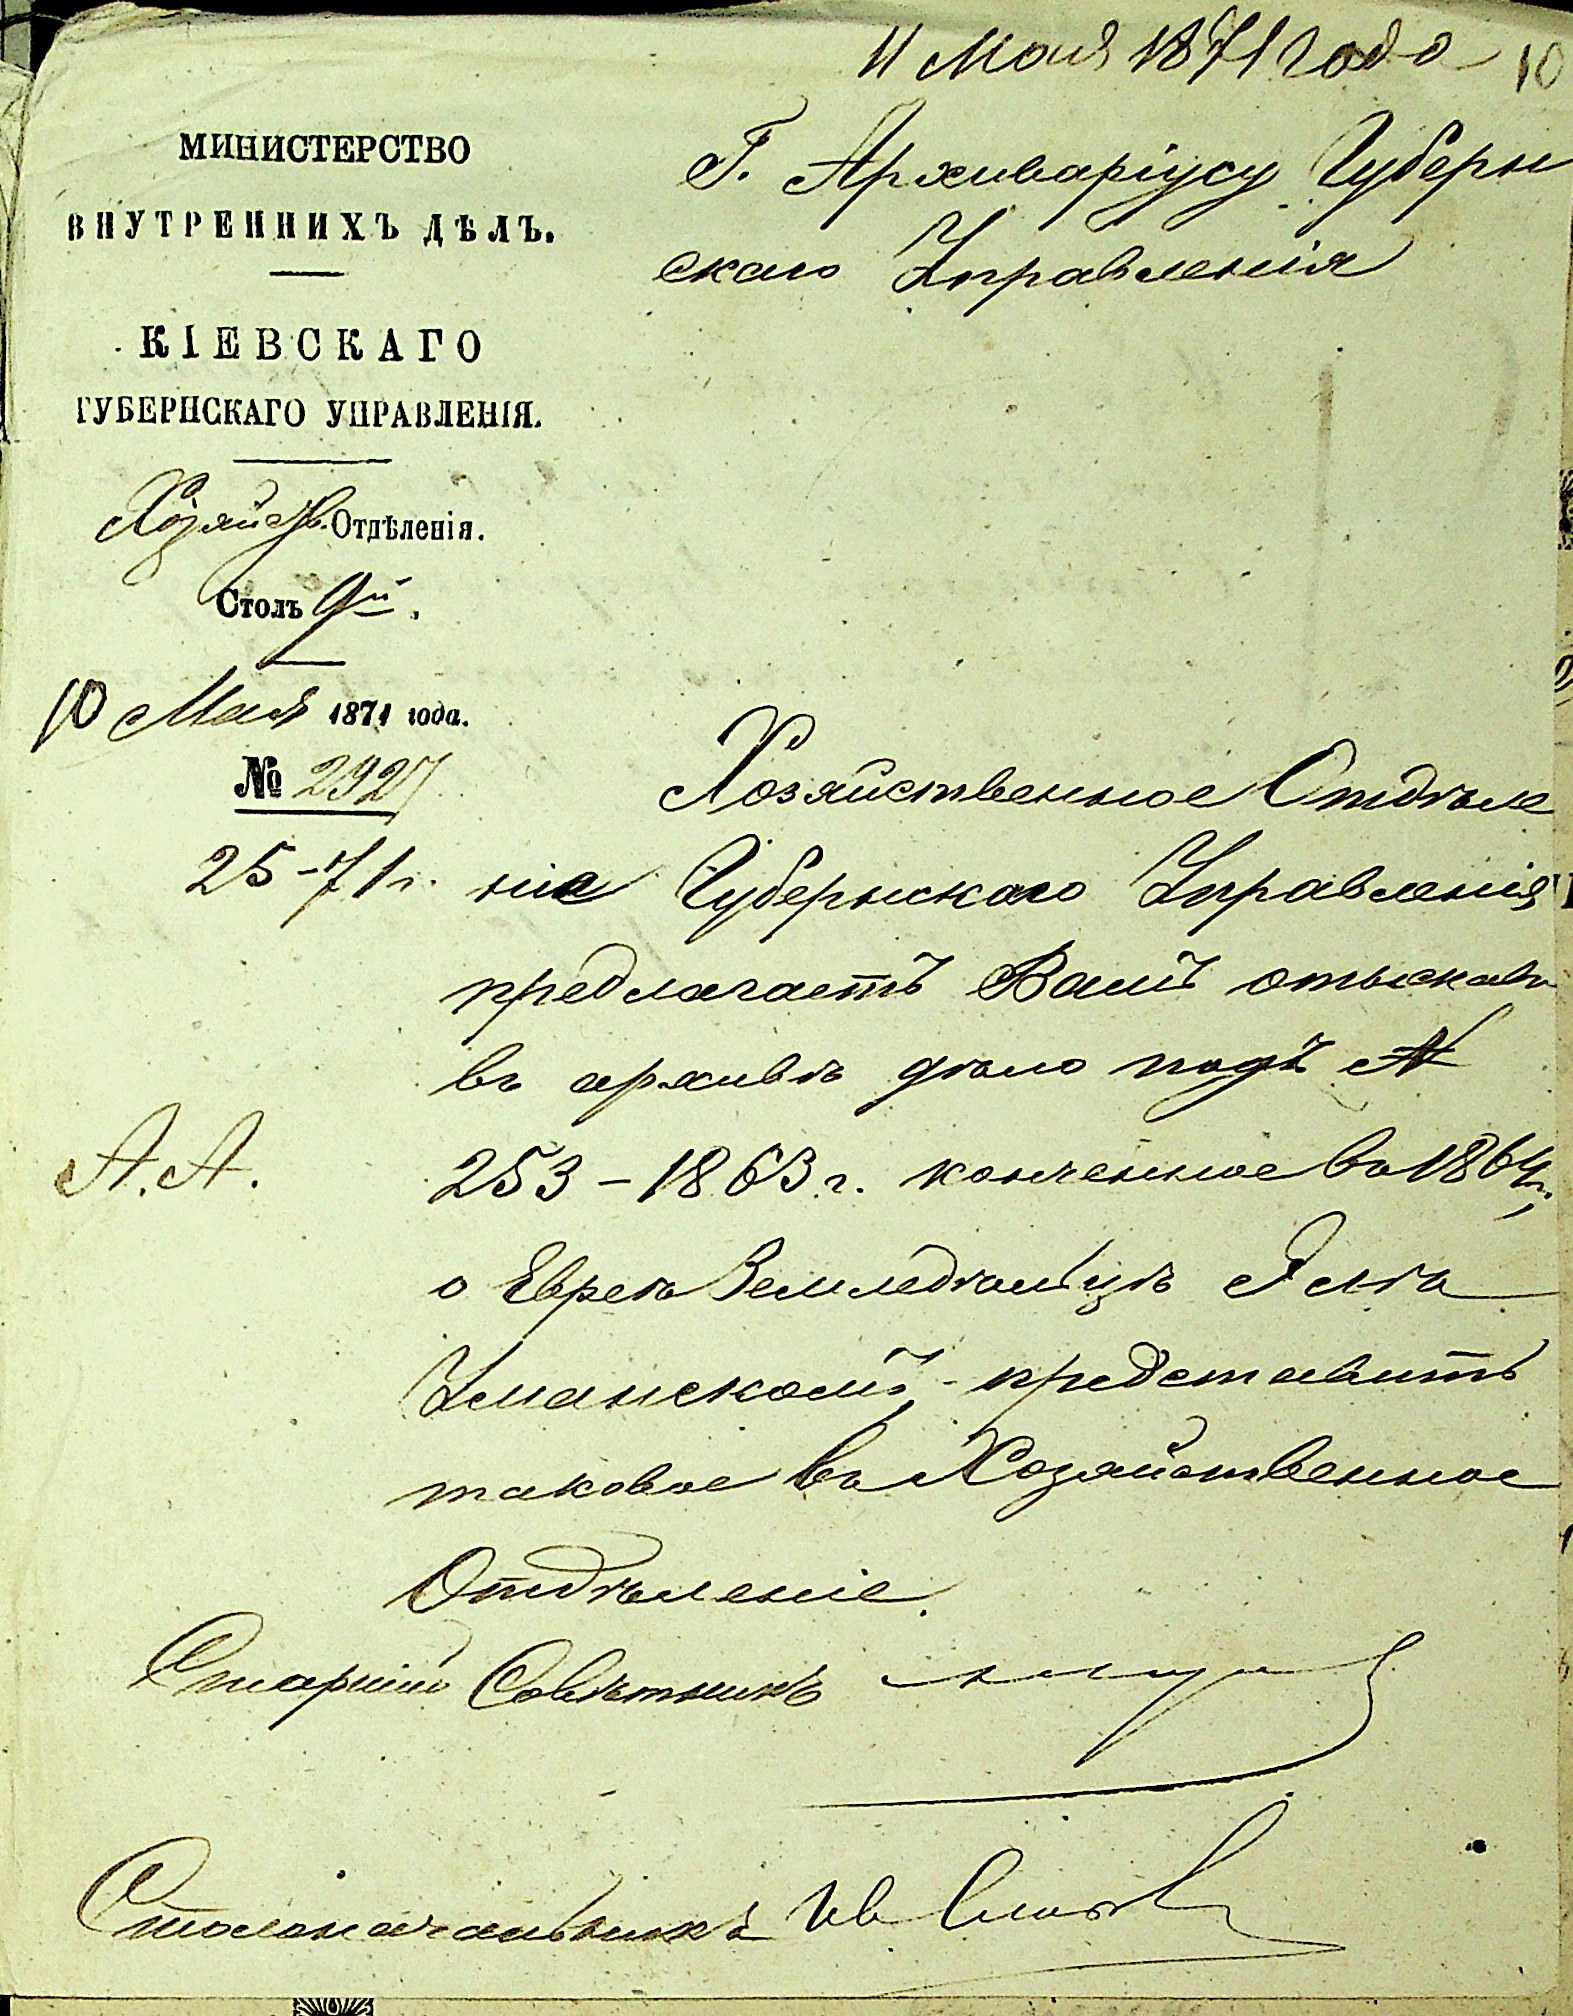 11 Мая 1871 года 10
Г. Архиваріусу Губерн
скаго Управленія
МИНИСТЕРСТВО
ВНУТРЕННИХЪ ДѢЛЪ.
КІЕВСКАГО
ГУБЕРНСКАГО УПРАВЛЕНІЯ.
Хозяйств. Отдѣленія.
Столъ 9й.
10 Мая 1871 года.
№ 2927
25-71 г.
Хозяйственное Отдѣле
ніе Губернскаго Управленія
предлагаетъ Вамъ отыскать
въ архивѣ дѣло подъ №
253-1863 г. конченное въ 1864 г.,
о Евреѣ Земледѣльцѣ
Уманскомъ, представить
таковое въ Хозяйственное
Отдѣленіе.
А. А.
Старшій Совѣтникъ
Столоначальникъ Ив